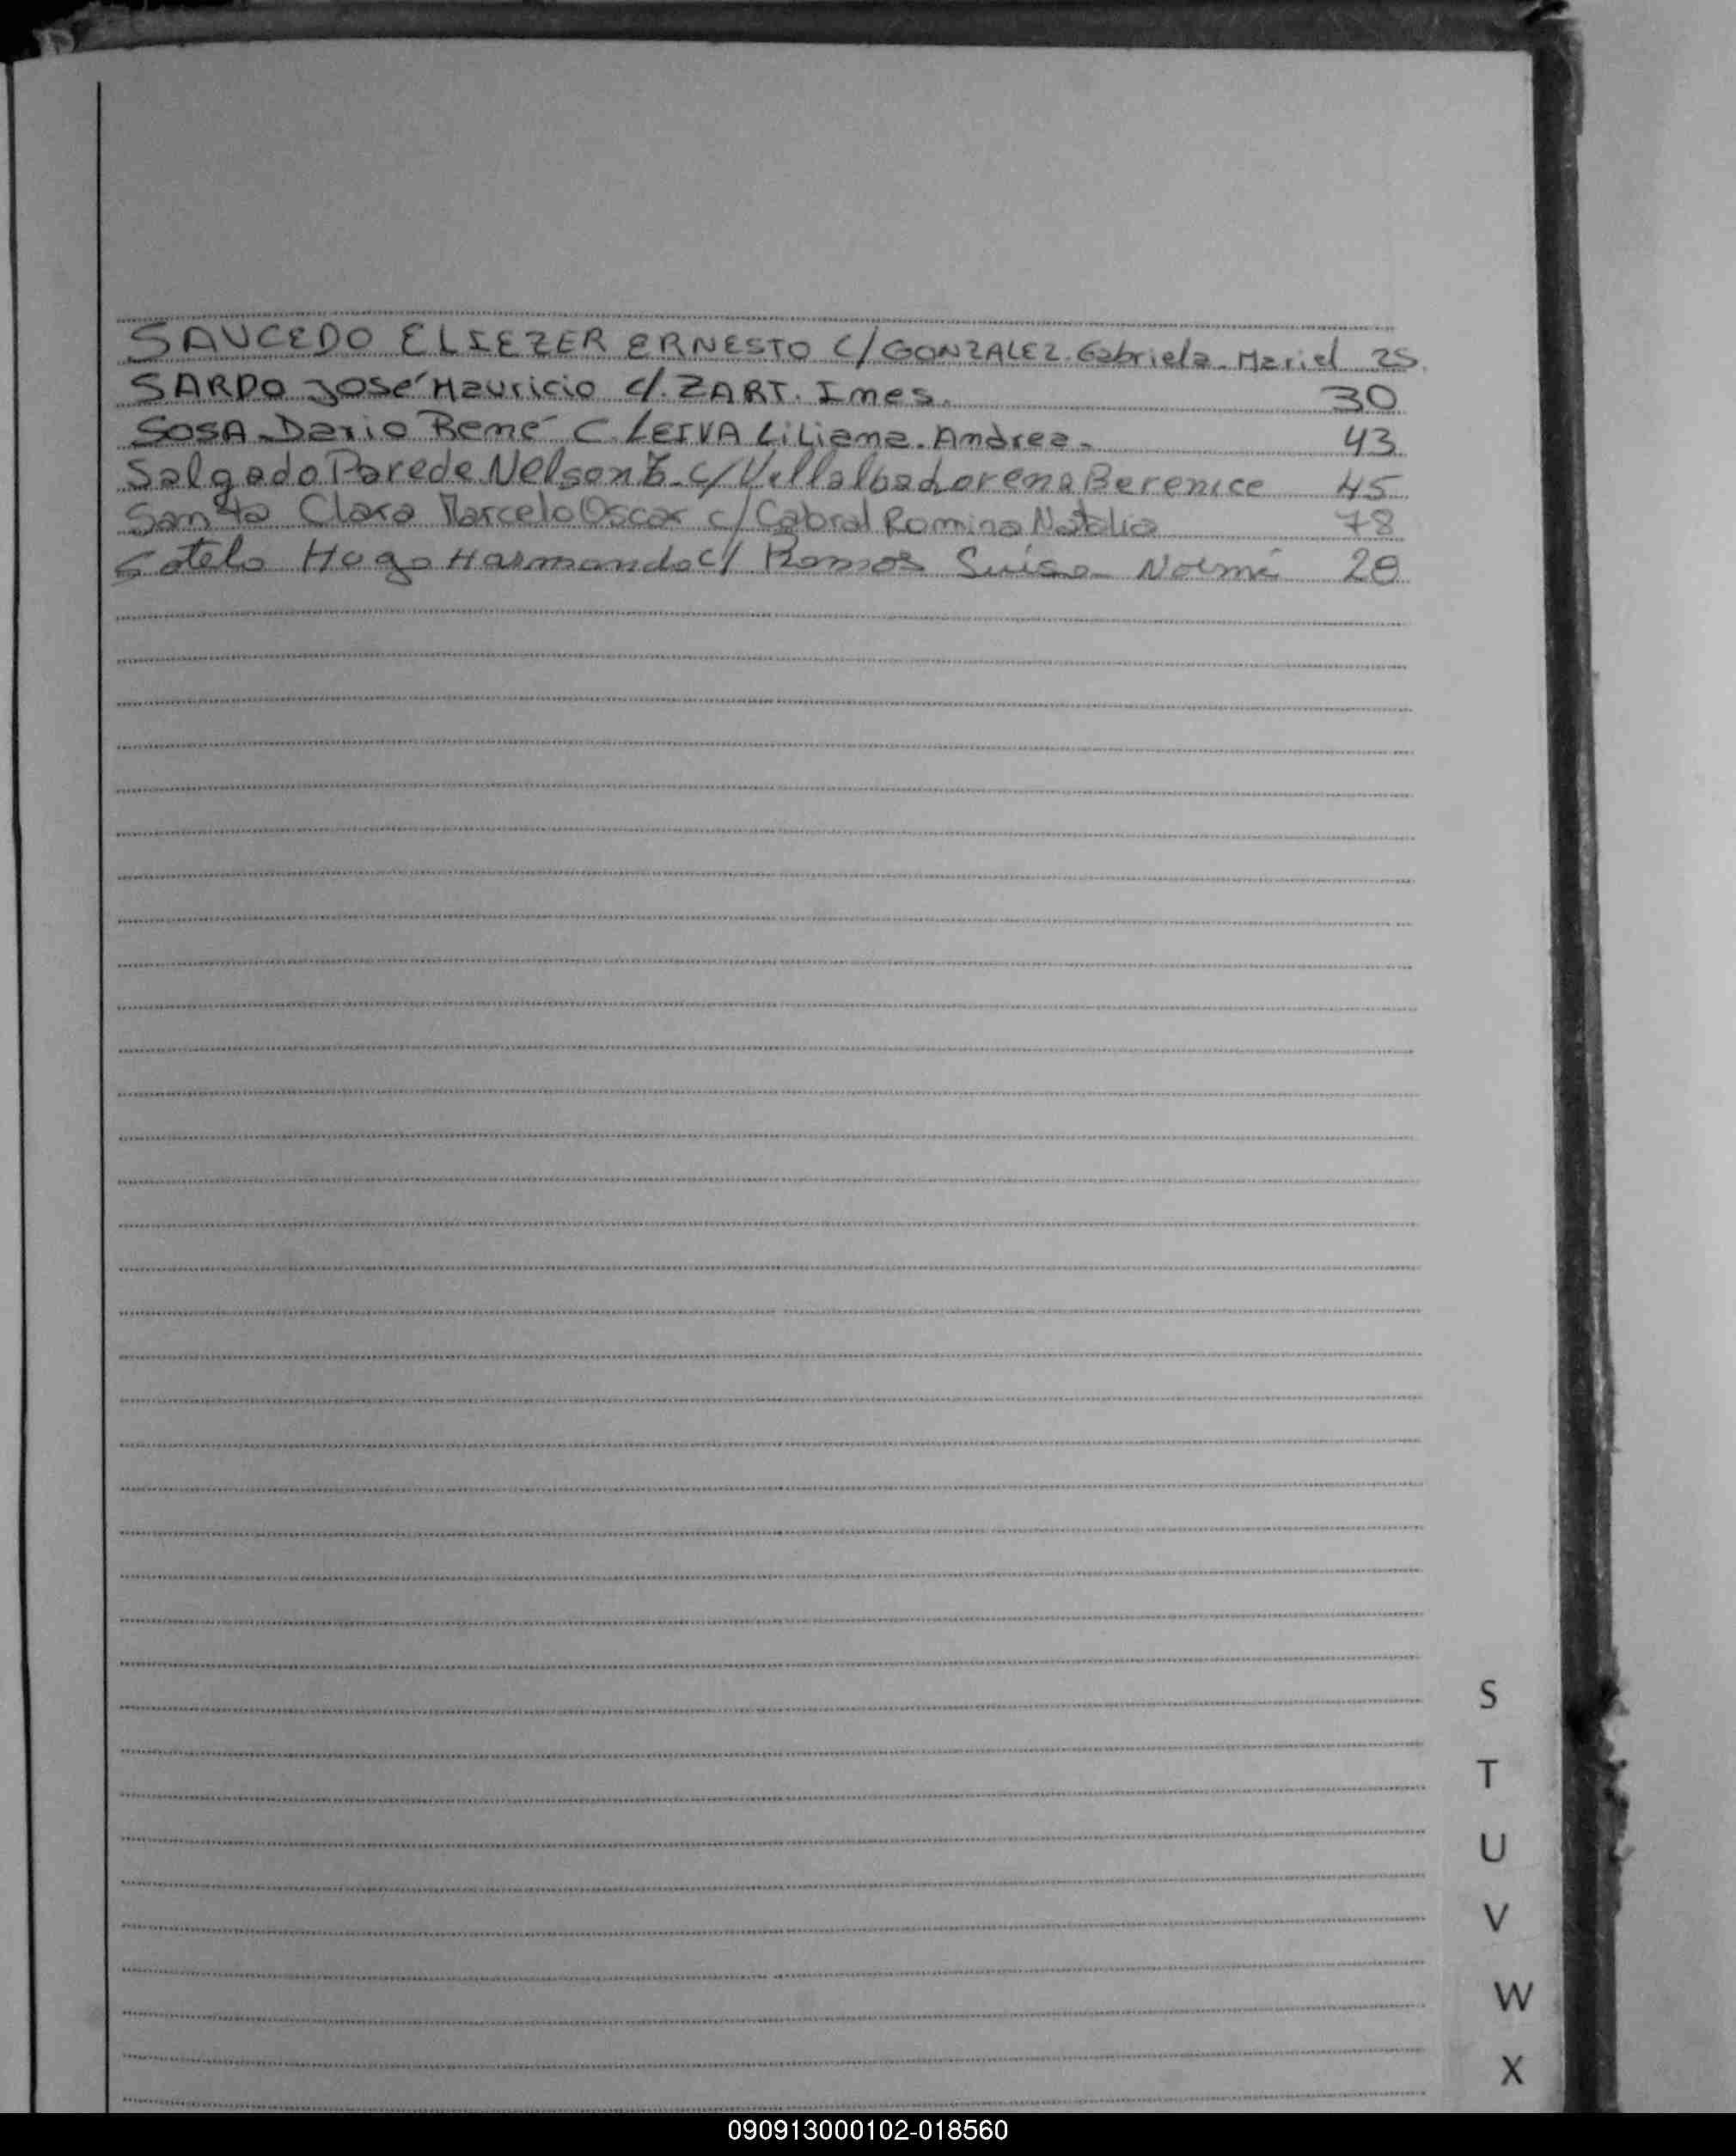 SAUCEDO ELIEZER ERNESTO C/GONZALEZ Gabriela Mariel 25
SARDO José Mauricio c/. ZART. Ines. 30
SOSA Dario René C. LEIVA Liliana Andrea- 43
Salgado Parede Nelson c/ Villalba Lorena Berenice 45
Santa Clara Marcelo Oscar c/ Cabral Romina Natalia 78
Sotelo Hugo Harmando c/ Ramos Noemí 20
S
T
U
V
W
X
090913000102-018560